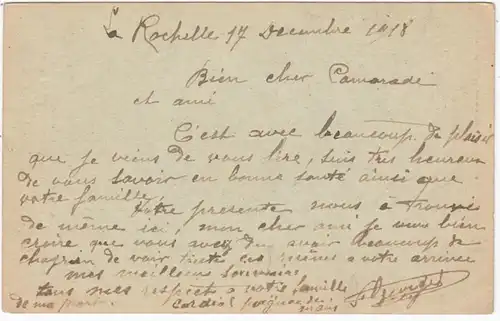 La Rochelle 17 Decembre 1918
Bien cher Camarade
et ami
C'est avec beaucoup de plaisir
que je viens de vous lire, suis tres heureux
de vous savoir en bonne santé ainsi que
votre famille.
Votre presente nous a trouvés
de même ici, mon cher ami je veux bien
croire que vous avez du avoir beaucoup de
chagrin de voir toutes ces mêmes a votre arrivée
mes meilleurs souvenirs
tous mes respects a votre famille
de ma part. Cordial poignee de
main